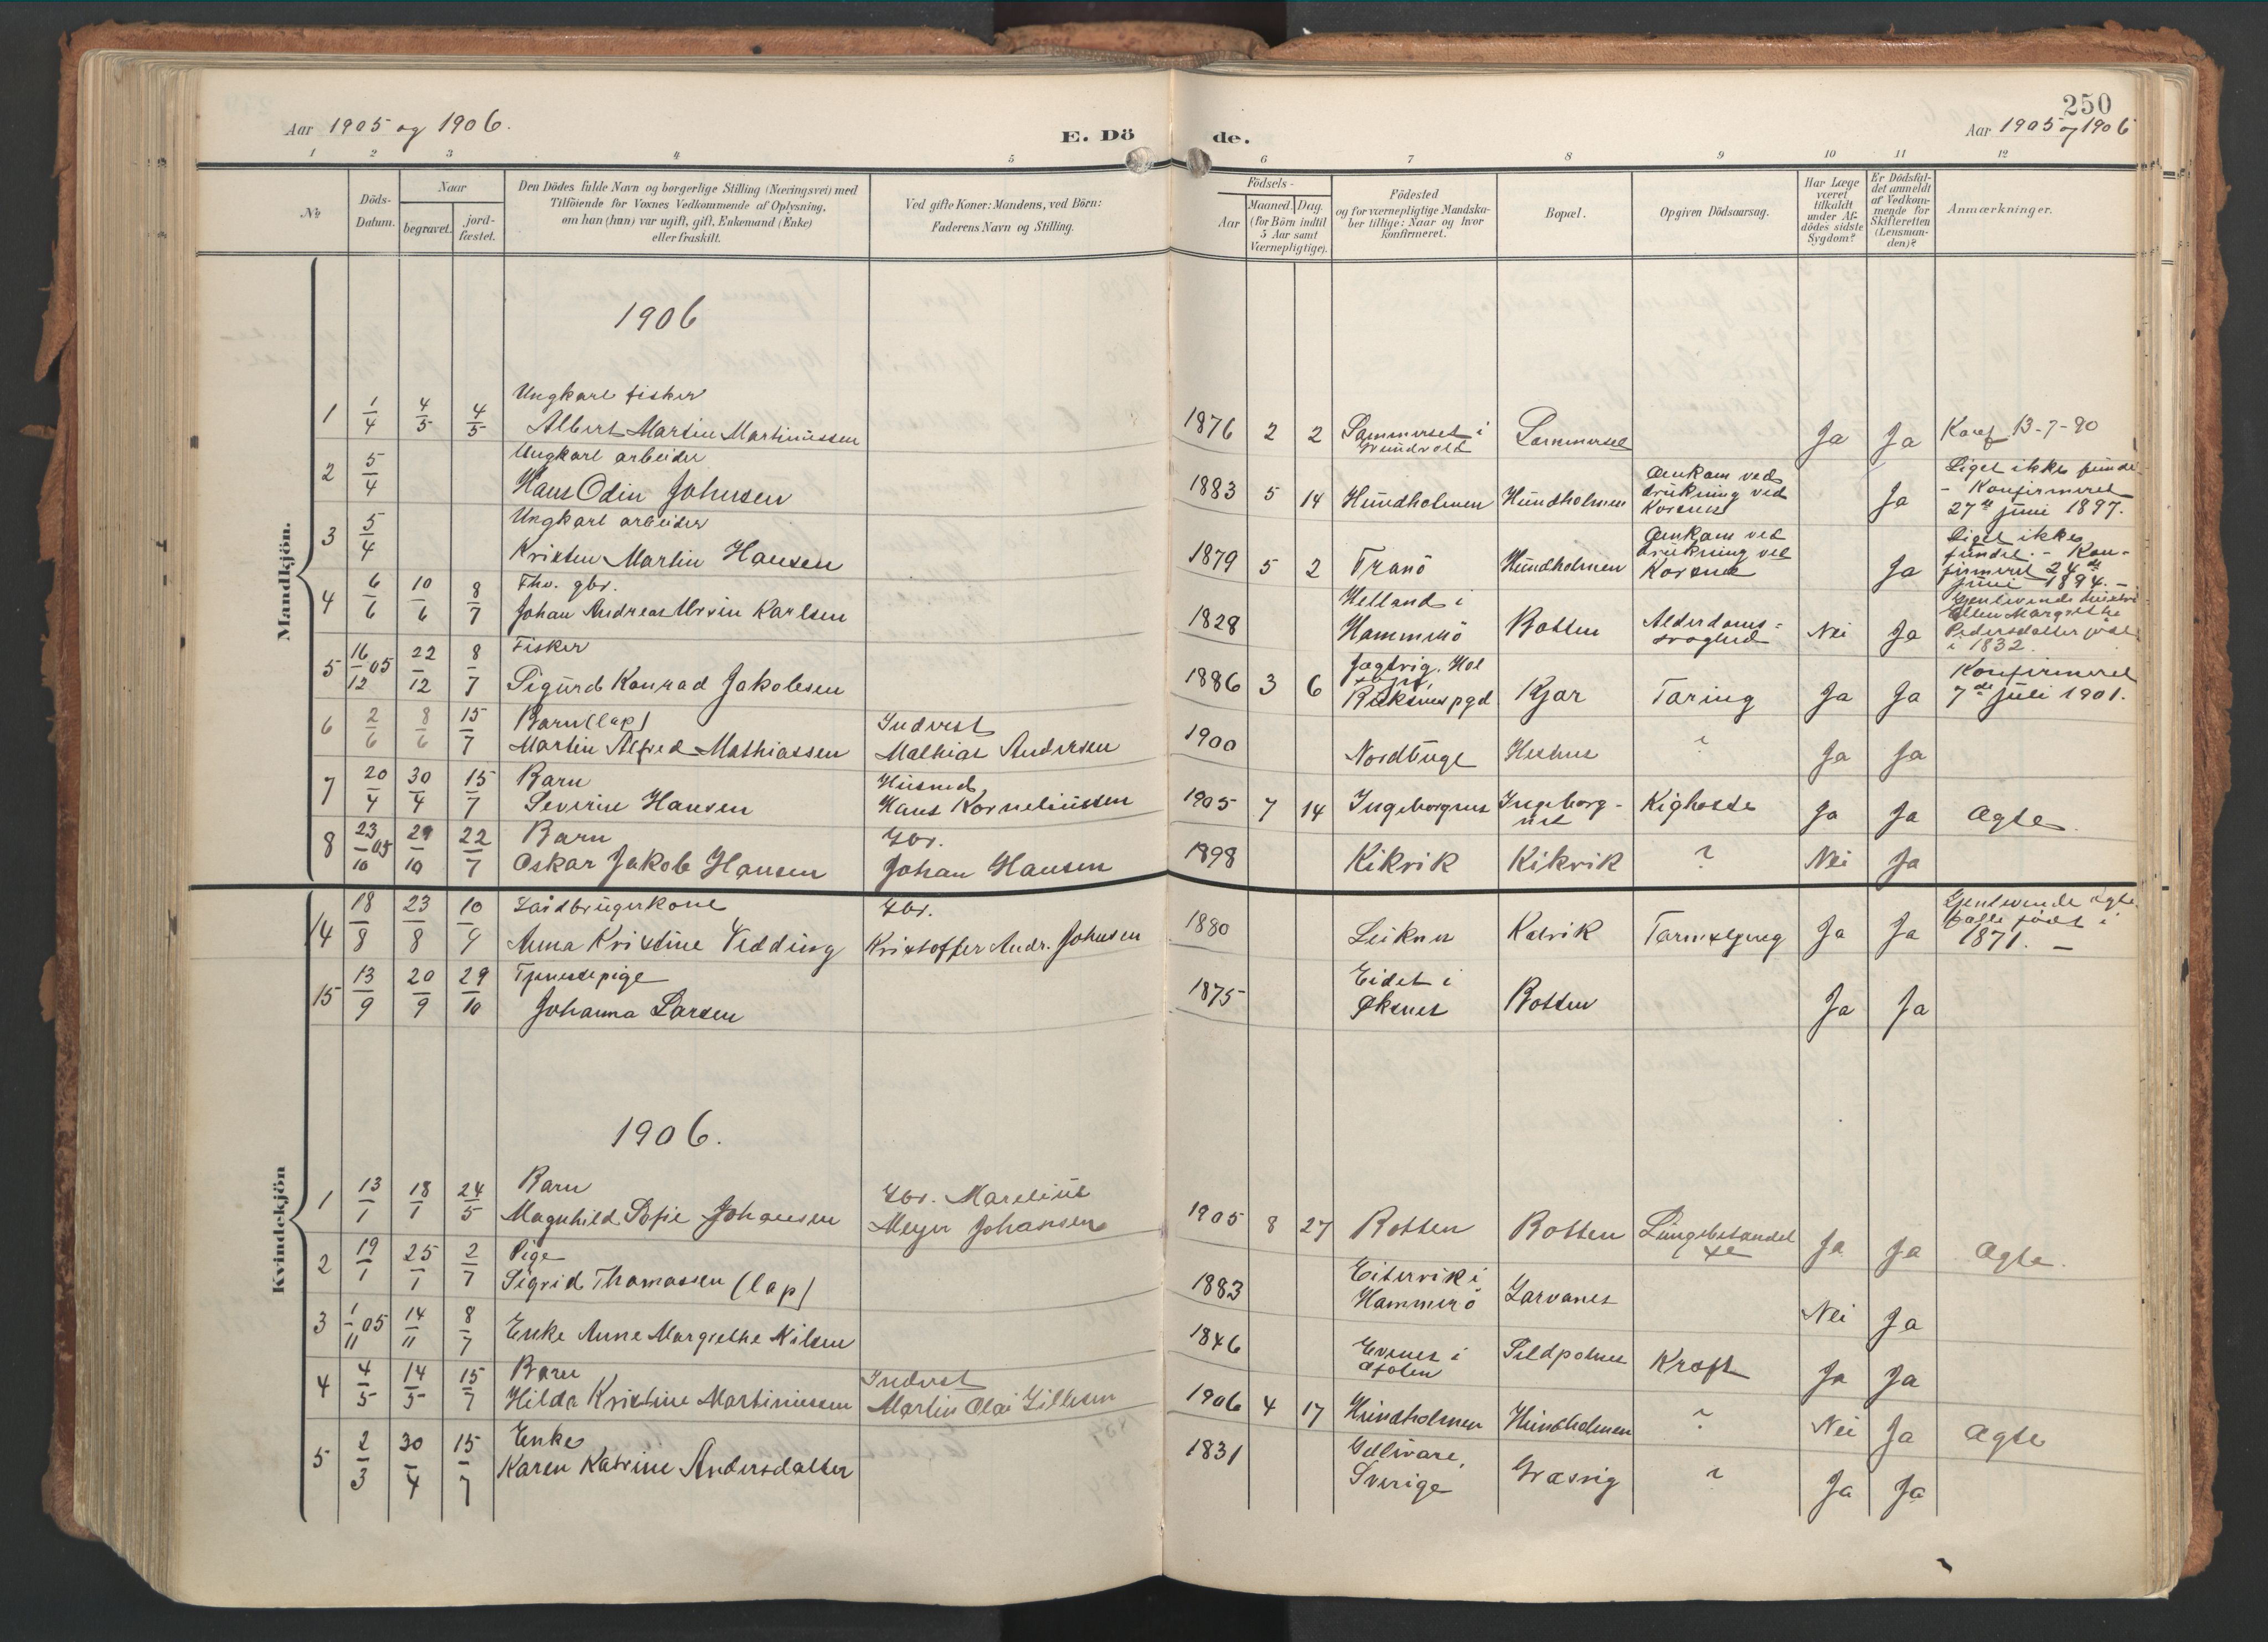 250
Aar 1905 og 1906.
E. Dö de.
Aar 1905 og 1906
1 2 3 4 5 6 7 8 9 10 11 12
No
Döds-Datum.
Naar
begravet.
jord-fæstet.
Den Dödes fulde Navn og borgerlige Stilling (Næringsvei) med
Tilföiende for Voxnes Vedkommende af Oplysning,
om han (hun) var ugift, gift, Enkemand (Enke)
eller fraskilt.
Ved gifte Koner: Mandens, ved Börn:
Faderens Navn og Stilling.
Födsels-
Aar
Maaned. Dag.
(for Börn indtil
5 Aar samt
Værnepligtige).
Födested
og for værnepligtige Mandska-
ber tillige: Naar og hvor
konfirmeret.
Bopæl.
Opgiven Dödsaarsag.
Har Læge
været
tilkaldt
under Af-
dödes sidste
Sygdom?
Er Dödsfal-
det anmeldt
af Vedkom-
mende for
Skifteretten
(Lensman-
den)?
Anmærkninger.
Mandkjön.
1906
Ungkarl fisker
1 1/4 4/5 4/5 Albert Martin Martinussen 1876 2 2 Sommerset i Sommerset Ja Ja Konf 13-7-90
Ungkarl arbeider
2 5/4 Hans Odin Johnsen 1883 5 14 Hundholmen Hundholmen Omkom ved
drukning ved
Korsnes Ja Liget ikke funde
- Konfirmeret
27de juni 1897.
Ungkarl arbeider
3 5/4 Kristen Martin Hansen 1879 5 2 Tranö Hundholmen Omkom ved
drukning ved
Korsnes Ja Liget ikke
fundet. - Kon-
firmeret 24de
juni 1894. -
Fhv. gbr.
4 6/6 10/6 8/7 Johan Andreas Karlsen 1828 Helland i
Hammerö Botten Alderdoms-
svaghed Nei Ja Gjenlevende
Ellen Margrethe
Pedersdatter född
i 1832.
Fisker
5 16/12 05 22/12 8/7 Sigurd Konrad Jakobsen 1886 3 6 Jægtvig. Hol
sogn,
Buksnes pgd Kjær Tæring Ja Ja Konfirmeret
7de juli 1901.
Barn (lap) Inderst
6 2/6 8/6 15/7 Martin Alfred Mathiassen Mathias Andersen 1900 Nordbuge ? Ja Ja
Barn Husmd,
7 20/4 30/4 15/7 Severin Hansen Hans Korneliussen 1905 7 14 Ingeborgnes Ingeborg-
nes Kighoste Ja Ja Ægte.
Barn Gbr.
8 23/10 05 29/10 22/7 Oskar Jakob Hansen Johan Hansen 1898 Kikvik Kikvik ? Nei Ja
Kvindekjön
Gaardbrugerkone Gbr.
14 18/8 23/8 10/9 Anna Kristine Vedding Kristoffer Andr. Johnsen 1880 Leiknes Kalvik Tarmslyng Ja Ja Gjenlevende ægte-
fælle födt i
1871. -
Tjenestepige
15 13/9 20/9 29/10 Johanna Larsen 1875 Eidet i
Øksnes Botten Ja Ja
1906.
Barn Gbr. Marelius
1 13/1 18/1 24/5 Magnhild Sofie Johansen Meyer Johansen 1905 8 27 Botten Botten Lungebetændel
se Ja Ja Ægte.
Pige
2 19/1 25/1 2/7 Sigrid Thomassen (lap) 1883 Eitervik i
Hammerö Garvanes Nei Ja
3 1/11 05 14/11 8/7 Enke Anne Margrethe Nilsen 1846 Evenes i
Ofoten Sildpolnes Kræft Ja Ja
Barn Inderst
4 4/5 14/5 15/7 Hilda Kristine Martinussen Martin Olai Gillesen 1906 4 17 Hundholmen Hundholmen ? Nei Ja Ægte
Enke
5 2/3 30/4 15/7 Karen Katrine Andersdatter 1831 Gellivare,
Sverige Græsvig ? Ja Ja